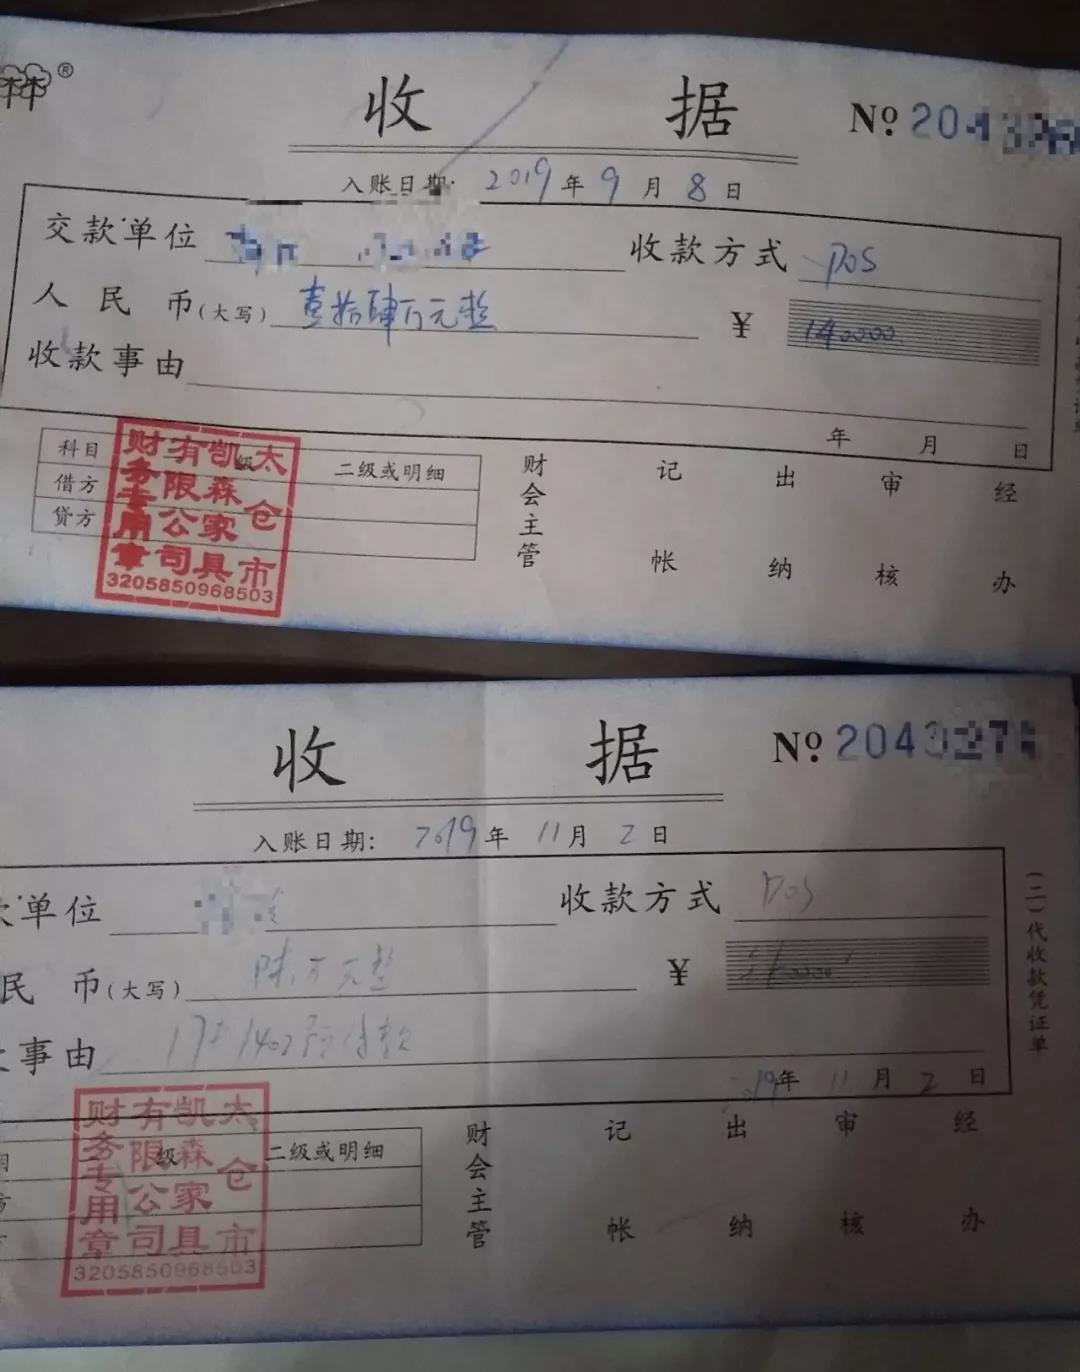 收 据
No. 2043
入账日期: 2019年9月8日
交款单位 收款方式 POS
人民币(大写) 壹拾肆万元整 ¥ 140000
收款事由
年 月 日
科目 级 二级或明细
借方
贷方
财会主管 记帐 出纳 审核 经办
太仓市凯森家具有限公司财务专用章
3205850968503
收 据
No. 2043276
入账日期: 2019年11月2日
款单位 收款方式 POS
民币(大写) 万元整 ¥
事由 17#1402 款
2019年11月2日
级 二级或明细
财会主管 记帐 出纳 审核 经办
太仓市凯森家具有限公司财务专用章
3205850968503
(二)代收款凭证单